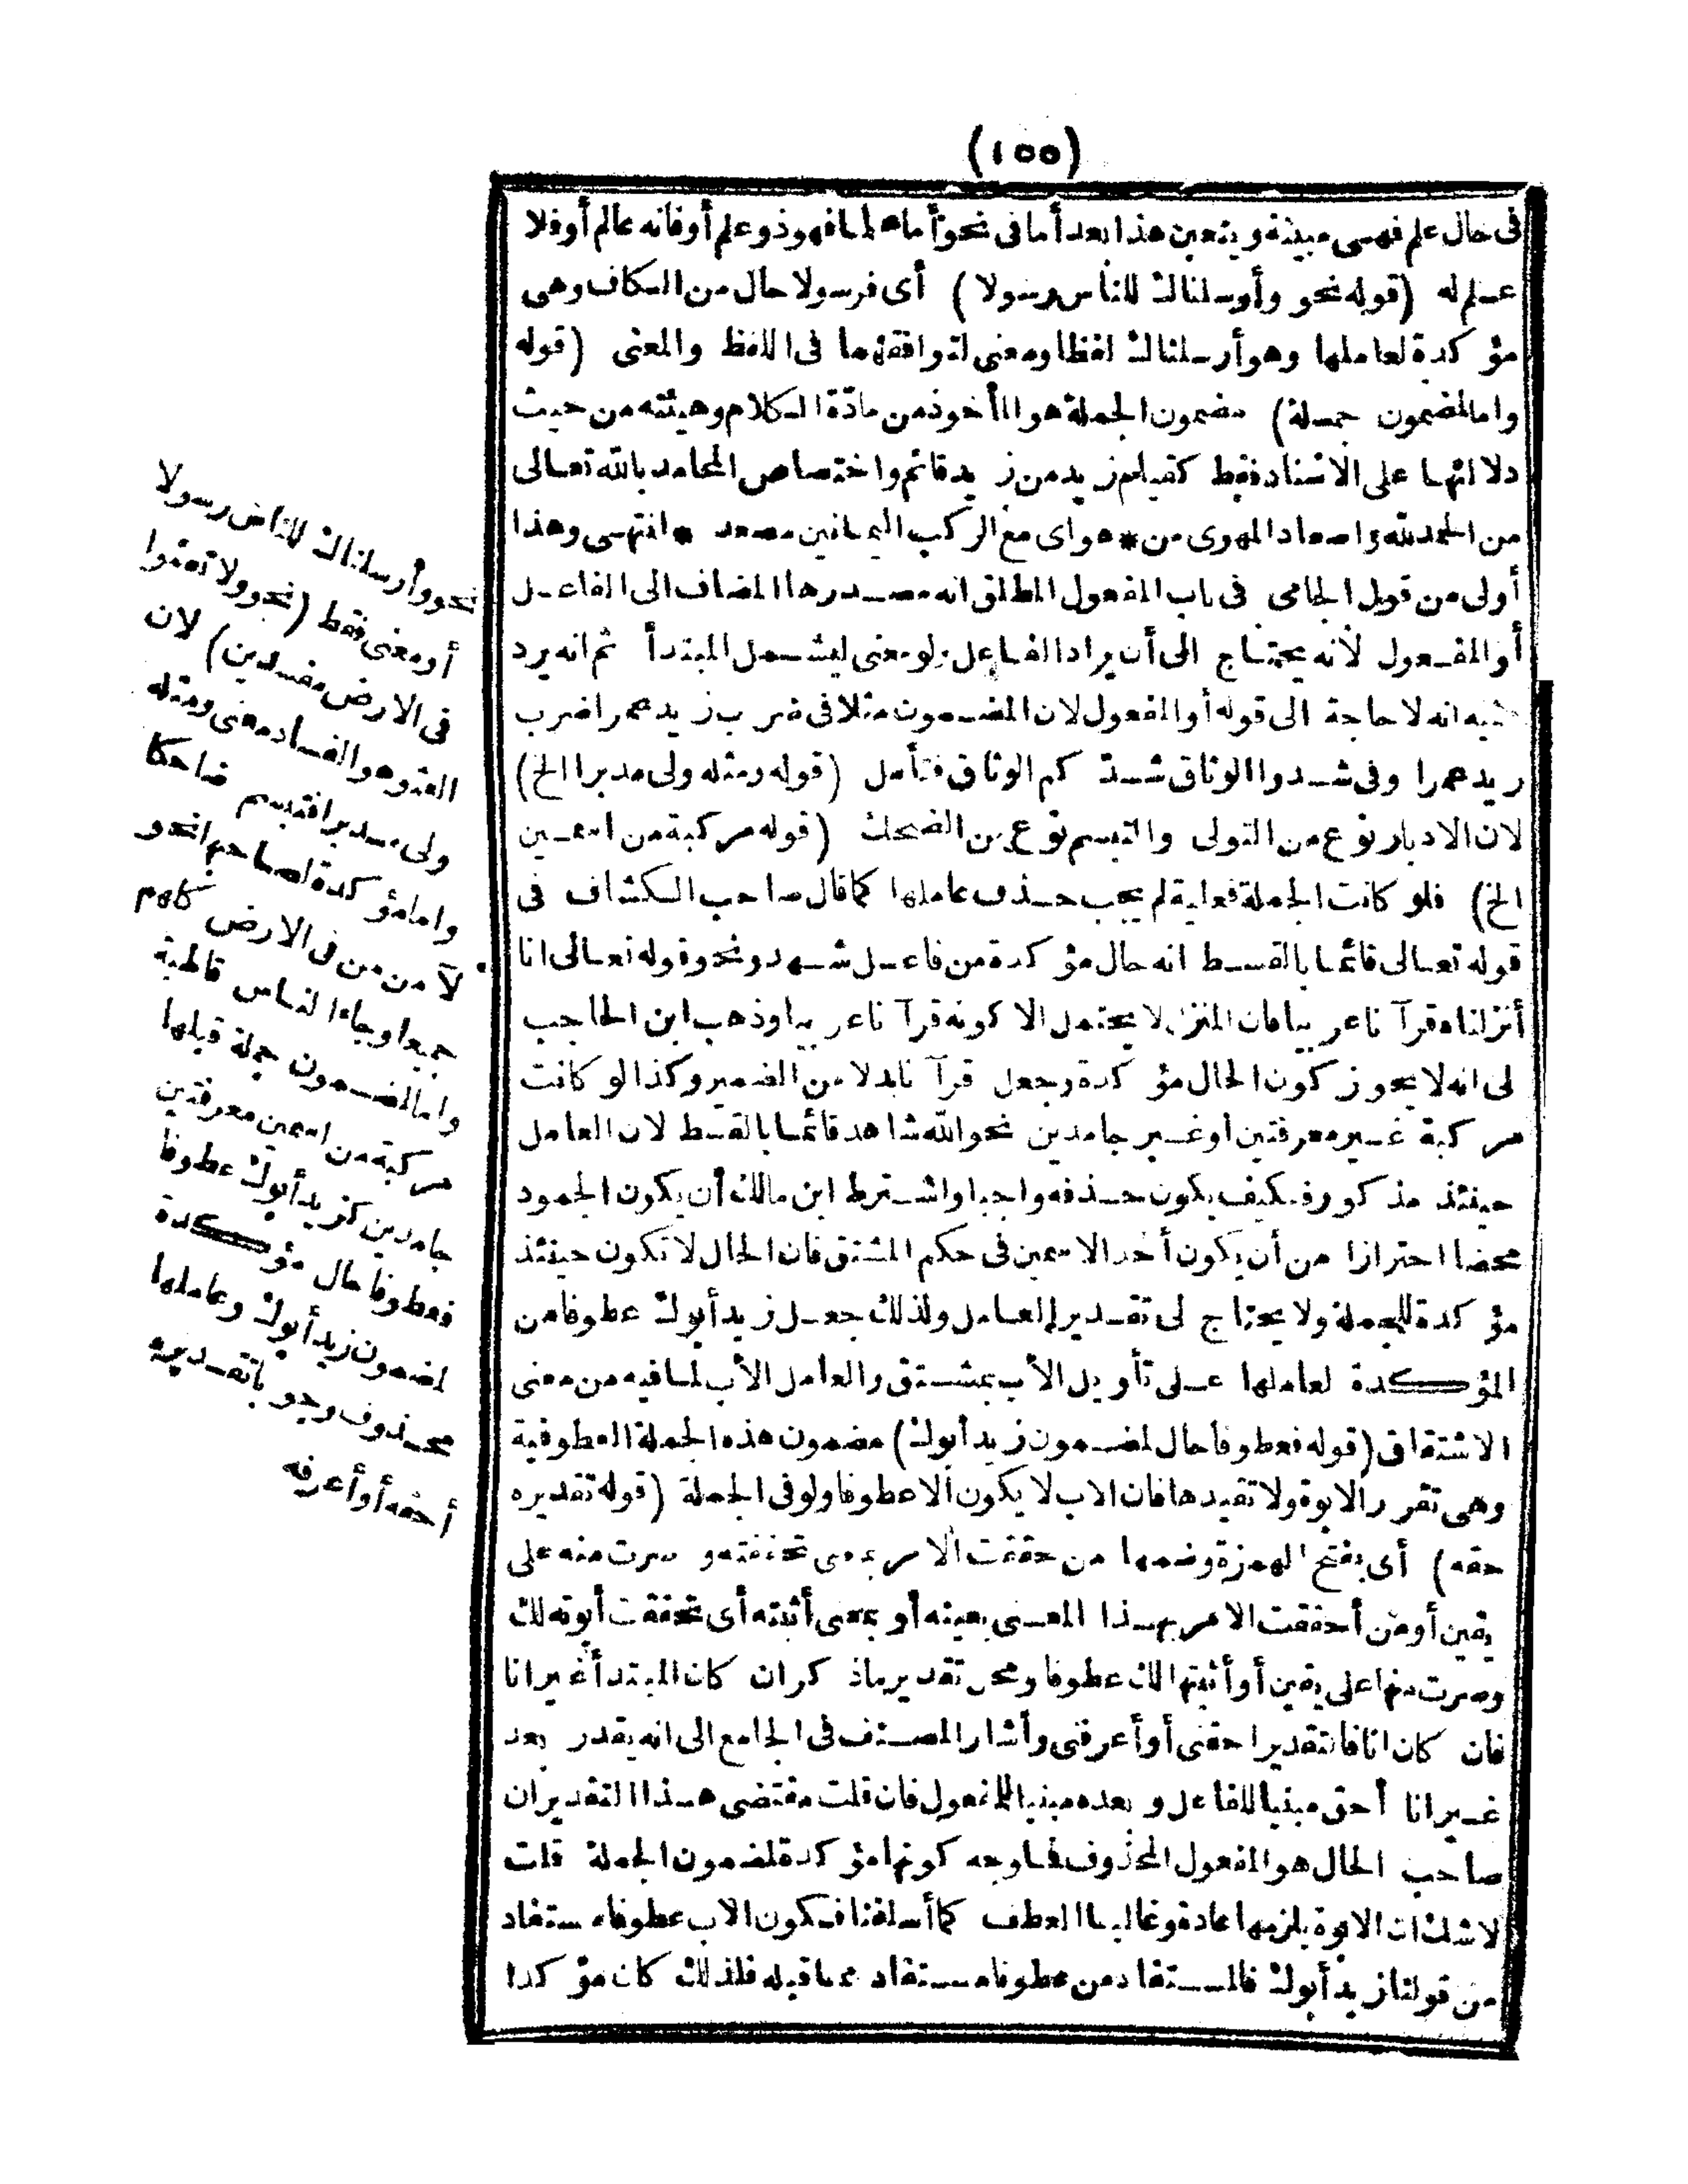 (١٥٥)
فى حال علم فهسى مبينة ويتعين هذا بعد أما فى نحو أما علما فهو ذو علم أو فانه عالم أو فلا
علم له (قوله نحو وأرسلناك للناس رسولا) أى فرسولا حال من الكاف وهى
مؤكدة لعاملها وهو أرسلناك لفظا ومعنى لتوافقهما فى اللفظ والمعنى (قوله
واما لمضمون جملة) مضمون الجملة هو المأخوذ من مادة الكلام وهيئته من حيث
دلالتها على الاسناد فقط كقيام زيد من زيد قائم واختصاص المحامد بالله تعالى
من الحمد لله واصعاد المهوى من * هواى مع الركب اليمانين مصعد * انتهسى وهذا
أولى من قول الجامى فى باب المفعول المطلق انه مصدرها المضاف الى الفاعل
أو المفعول لانه يحتاج الى أن يراد الفاعل ولو معنى ليشمل المبتدأ ثم انه يرد
انه لا حاجة الى قوله أو المفعول لان المضمون مثلا فى ضرب زيد عمرا ضرب
زيد عمرا وفى شدوا الوثاق شدكم الوثاق فتأمل (قوله ومثله ولى مدبرا الخ)
لان الادبار نوع من التولى والتبسم نوع من الضحك (قوله مركبة من اسمين
الخ) فلو كانت الجملة فعلية لم يجب حذف عاملها كما قال صاحب الكشاف فى
قوله تعالى قائما بالقسط انه حال مؤكدة من فاعل شهد ونحو قوله تعالى انا
أنزلناه قرآنا عربيا فان المنزل لا يحتمل الا كونه قرآنا عربيا وذهب ابن الحاجب
لى انه لا يجوز كون الحال مؤكدة وجعل قرآنا بدلا من الضمير وكذا لو كانت
مركبة غير معرفتين أو غير جامدين نحو الله شاهد قائما بالقسط لان العامل
حينئذ مذكور فكيف يكون حذفه واجبا واشترط ابن مالك أن يكون الجمود
محضا احترازا من أن يكون أحد الاسمين فى حكم المشتق فان الحال لا تكون حينئذ
مؤكدة للجملة ولا يحتاج لى تقدير العامل ولذلك جعل زيد أبوك عطوفا من
المؤكدة لعاملها على تأويل الأب بمشتق والعامل الأب لما فيه من معنى
الاشتقاق (قوله فعطوفا حال لمضمون زيد أبوك) مضمون هذه الجملة العطوفية
وهى تقرر الابوة ولا تقيدها فان الاب لا يكون الا عطوفا ولو فى الجملة (قوله تقديره
حقه) أى بفتح الهمزة وضمها من حققت الامر بمعنى تحققته وصرت منه على
يقين أو من أحققت الامر بهذا المعنى بعينه أو بمعنى أثبته أى تحققت أبوته لك
وصرت منها على يقين أو أثبتها لك عطوفا ومحل تقدير ما ذكر ان كان المبتدأ غير انا
فان كان انا فالتقدير احقنى أو أعرفنى وأشار المصنف فى الجامع الى انه يقدر بعد
غير انا أحق مبنيا للفاعل وبعده مبنيا للمفعول فان قلت مقتضى هذا التقدير ان
صاحب الحال هو المفعول المحذوف فما وجه كونها مؤكدة لمضمون الجملة قلت
لا شك ان الابوة يلزمها عادة وغالبا العطف كما أسلفنا فكون الاب عطوفا مستفاد
من قولنا زيد أبوك فالمستفاد من عطوفا مستفاد مما قبله فلذلك كان مؤكدا
نحو وأرسلناك للناس رسولا
أو معنى فقط (نحو ولا تعثوا
فى الارض مفسدين) لان
العثو هو الفساد معنى ومثله
ولى مدبرا فتبسم ضاحكا
واما مؤكدة لصاحبها نحو
لآمن من فى الارض كلهم
جميعا وجاء الناس قاطبة
واما لمضمون جملة قبلها
مركبة من اسمين معرفتين
جامدين كزيد أبوك عطوفا
فعطوفا حال مؤكدة
لمضمون زيد أبوك وعاملها
محذوف وجوبا تقديره
أحقه أو أعرفه